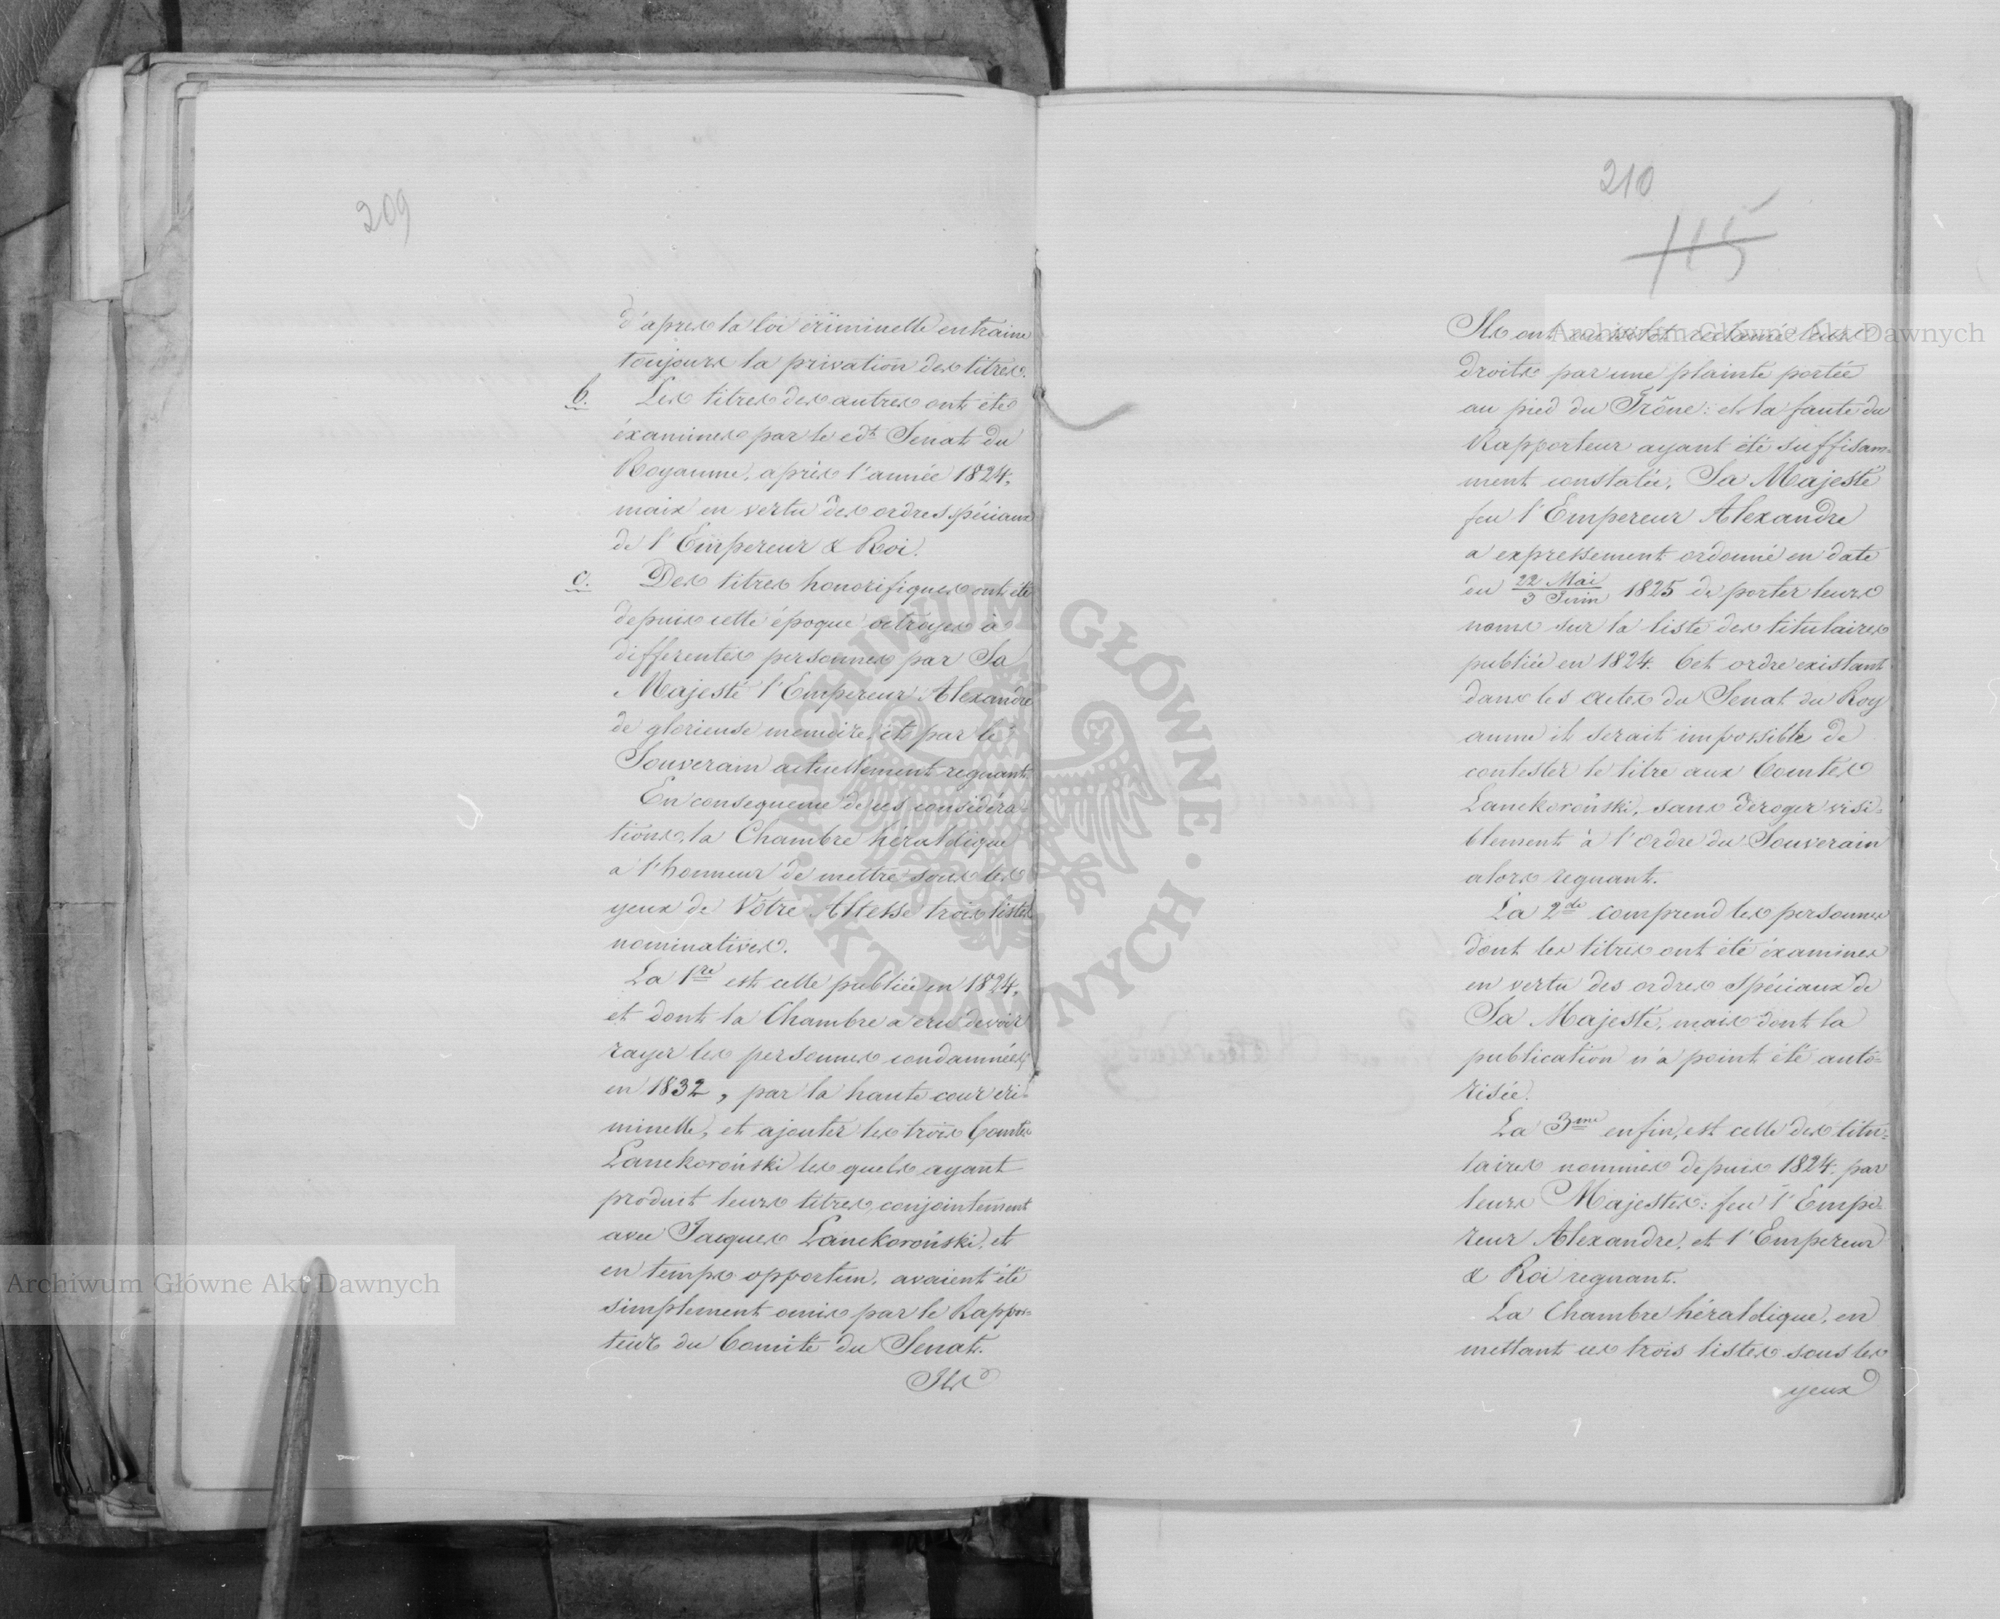 209
d'après la loi criminelle entraine
toujours la privation des titres.
b. Les titres des autres ont été
éxaminés par le edt Senat du
Royaume, après l'année 1824,
mais en vertu des ordres spéciaux
de l'Empereur & Roi.
c. Des titres honorifiques ont été
depuis cette époque octroyés à
differentes personnes par Sa
Majesté l'Empereur Alexandre
de glorieuse memoire, et par le
Souverain actuellement regnant.
En consequence de ces considéra-
tions, la Chambre héraldique
a l'honneur de mettre sous les
yeux de Vôtre Altesse trois listes
nominatives.
La 1re est celle publiée en 1824,
et dont la Chambre a cru devoir
rayer les personnes condamnées
en 1832, par la haute cour cri-
minelle, et ajouter les trois Comtes
Lanckoroński les quels ayant
produit leurs titres, conjointement
avec Jacques Lanckoroński, et
en temps opportun, avaient été
simplement omis par le Rappor-
teur du Comité du Senat.
Ils
210
115
Ils ont ensuite reclamé leurs
droits par une plainte portée
au pied du Trône: et la faute du
Rapporteur ayant été suffisam-
ment constatée, Sa Majesté
feu l'Empereur Alexandre
a expressement ordonné en date
du 22 Mai / 3 Juin 1825 de porter leurs
noms sur la liste des titulaires
publiée en 1824. Cet ordre existant
dans les actes du Senat du Roy
aume il serait impossible de
contester le titre aux Comtes
Lanckoroński, sans déroger visi-
blement à l'ordre du Souverain
alors regnant.
La 2de comprend les personnes
dont les titres ont été éxaminés
en vertu des ordres spéciaux de
Sa Majesté, mais dont la
publication n'a point été auto-
risée.
La 3me enfin, est celle des titu-
laires nommés depuis 1824, par
leurs Majestés: feu l'Empe-
reur Alexandre, et l'Empereur
& Roi regnant.
La Chambre héraldique, en
mettant ces trois listes sous les
yeux
Archiwum Główne Akt Dawnych
Archiwum Główne Akt Dawnych
ARCHIWUM GŁÓWNE • AKT DAWNYCH •